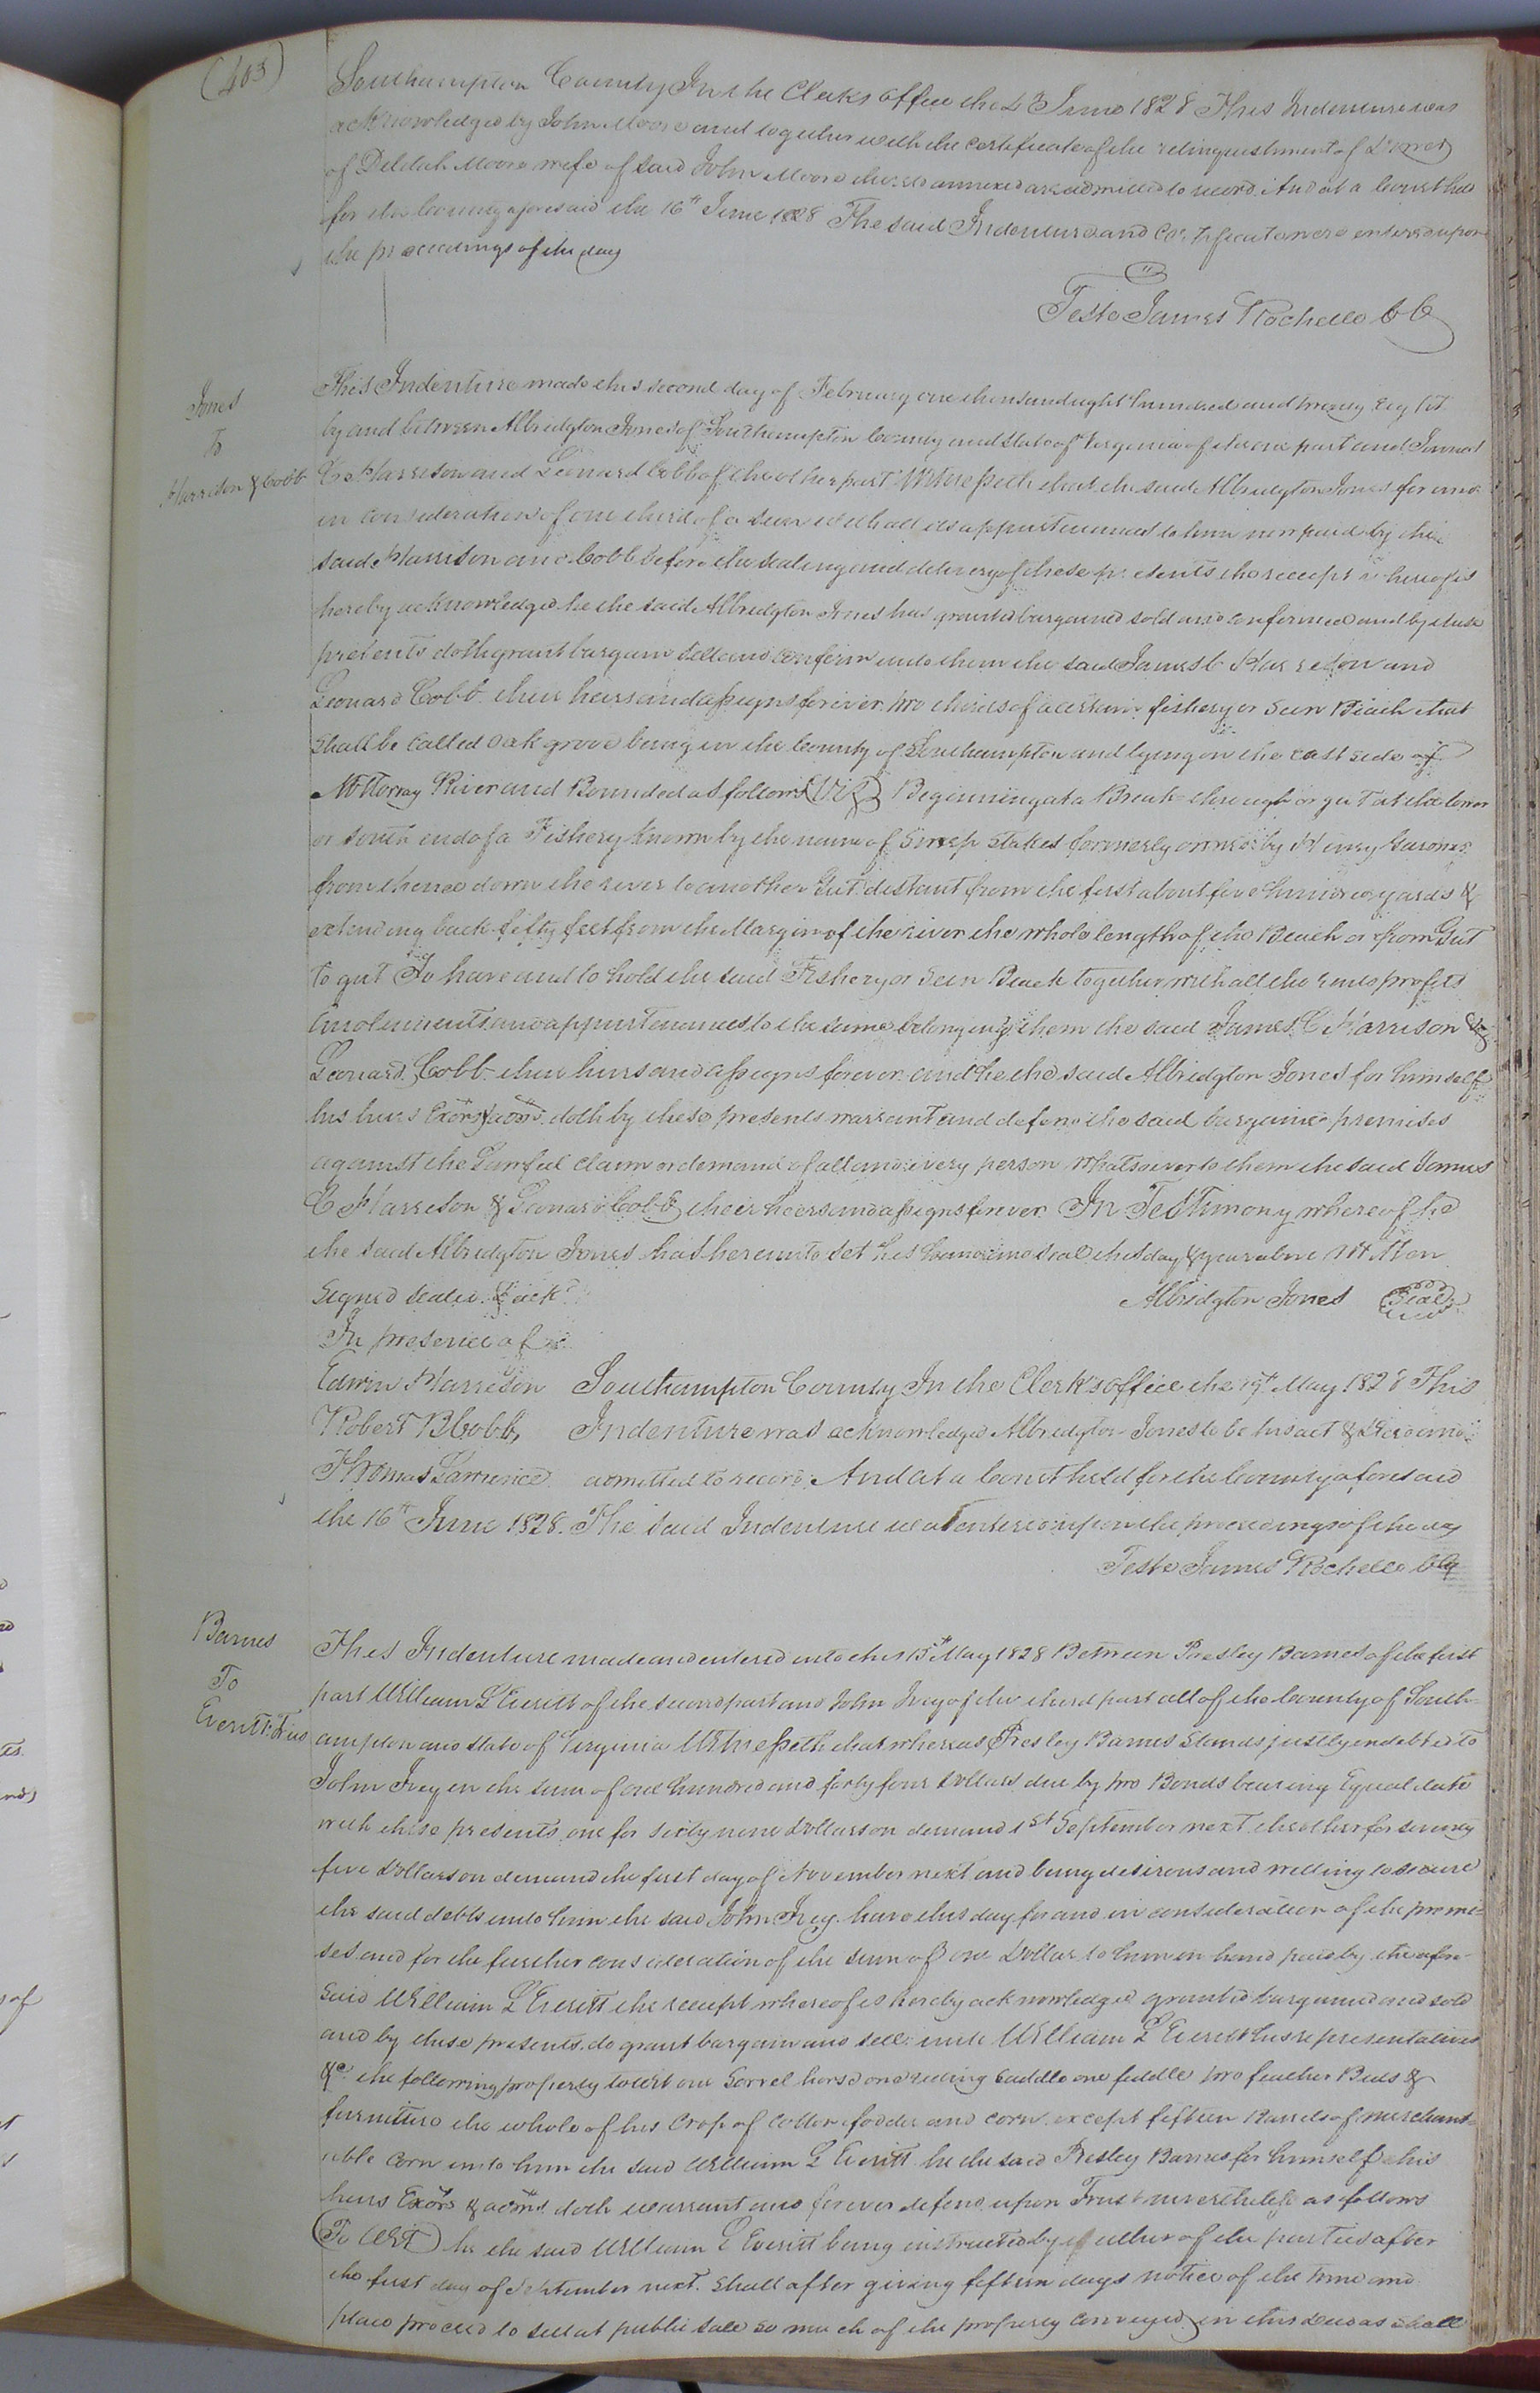 (403)
Southampton County In the Clerks office the 23 June 1828 This Indenture was
acknowledged by John Moore and together with the certificate of the relinquishment of Dower
of Delilah Moore wife of said John Moore thereto annexed are admitted to record. And at a Court held
for the County aforesaid the 16th June 1828 The said Indenture and Certificate were entered upon
the proceedings of the day
Teste James Rochelle CC
Jones
To
Harrison & Cobb
This Indenture made this second day of February one thousand eight hundred and twenty eight
by and between Albridgton Jones of Southampton County and State of Virginia of the one part and James
C Harrison and Leonard Cobb of the other part Witnesseth that the said Albridgton Jones for and
in consideration of one third of a Sein with all its appurtenances to him now paid by the
said Harrison and Cobb before the sealing and delivery of these presents the receipt whereof is
hereby acknowledged he the said Albridgton Jones has granted bargained sold and confirmed and by these
presents doth grant bargain sell and confirm unto them the said James C Harrison and
Leonard Cobb their heirs and assigns forever two thirds of a certain fishery or Sein Beach that
shall be called Oak grove being in the County of Southampton and lying on the east side of
Nottoway River and Bounded as follows (Viz) Beginning at a Break through or gut at the lower
or south end of a Fishery known by the name of Sweep Stakes formerly owned by Henry Gardner
from thence down the river to another Gut distant from the first about five hundred yards &
extending back fifty feet from the Margin of the river the whole length of the Beach or from Gut
to gut To have and to hold the said Fishery or Sein Beach together with all the rents profits
Emoluments and appurtenances to the same belonging them the said James C Harrison &
Leonard Cobb their heirs and assigns forever and he the said Albridgton Jones for himself
his heirs Exors & adms doth by these presents warrant and defend the said bargained premises
against the Lawful claim or demand of all and every person whatsoever to them the said James
C Harrison & Leonard Cobb their heirs and assigns forever In Testimony whereof he
the said Albridgton Jones has hereunto set his hand and seal the day & year above Written
Signed sealed & ackd
Albridgton Jones Seal
In presence of
Edwin Harrison
Robert B Cobb
Thomas Lawrence
Southampton County In the Clerk's office the 19th May 1828 This
Indenture was acknowledged Albridgton Jones to be his act & Deed and
admitted to record. And at a Court held for the County aforesaid
the 16th June 1828. The said Indenture was entered upon the proceedings of the day
Teste James Rochelle CC
Barnes
To
Everitt Trus
This Indenture made and entered into this 15th May 1828 Between Presley Barnes of the first
part William L Everitt of the second part and John Ivey of the third part all of the County of South
ampton and State of Virginia Witnesseth that whereas Presley Barnes stands justly indebted to
John Ivey in the sum of one hundred and forty four Dollars due by two Bonds bearing Equal date
with these presents one for sixty nine Dollars on demand 1st September next the other for seventy
five Dollars on demand the first day of November next and being desirous and willing to secure
the said debts unto him the said John Ivey. have this day for and in consideration of the premi-
ses and for the further consideration of the sum of one Dollar to him in hand paid by the afore-
said William L Everitt the receipt whereof is hereby acknowledged granted bargained and sold
and by these presents do grant bargain and sell unto William L Everitt his representatives
&c the following property to wit one Sorrel horse one riding saddle one fiddle two feather Beds &
furniture the whole of his Crop of Cotton fodder and corn except fifteen Barrels of merchant-
able Corn unto him the said William L Everitt he the said Presley Barnes for himself & his
heirs Exors & adms doth warrant and forever defend upon Trust nevertheless as follows
(To Wit) he the said William L Everitt being instructed by either of the parties after
the first day of September next. shall after giving fifteen days notice of the time and
place proceed to sell at public sale so much of the property conveyed in this Deed as shall